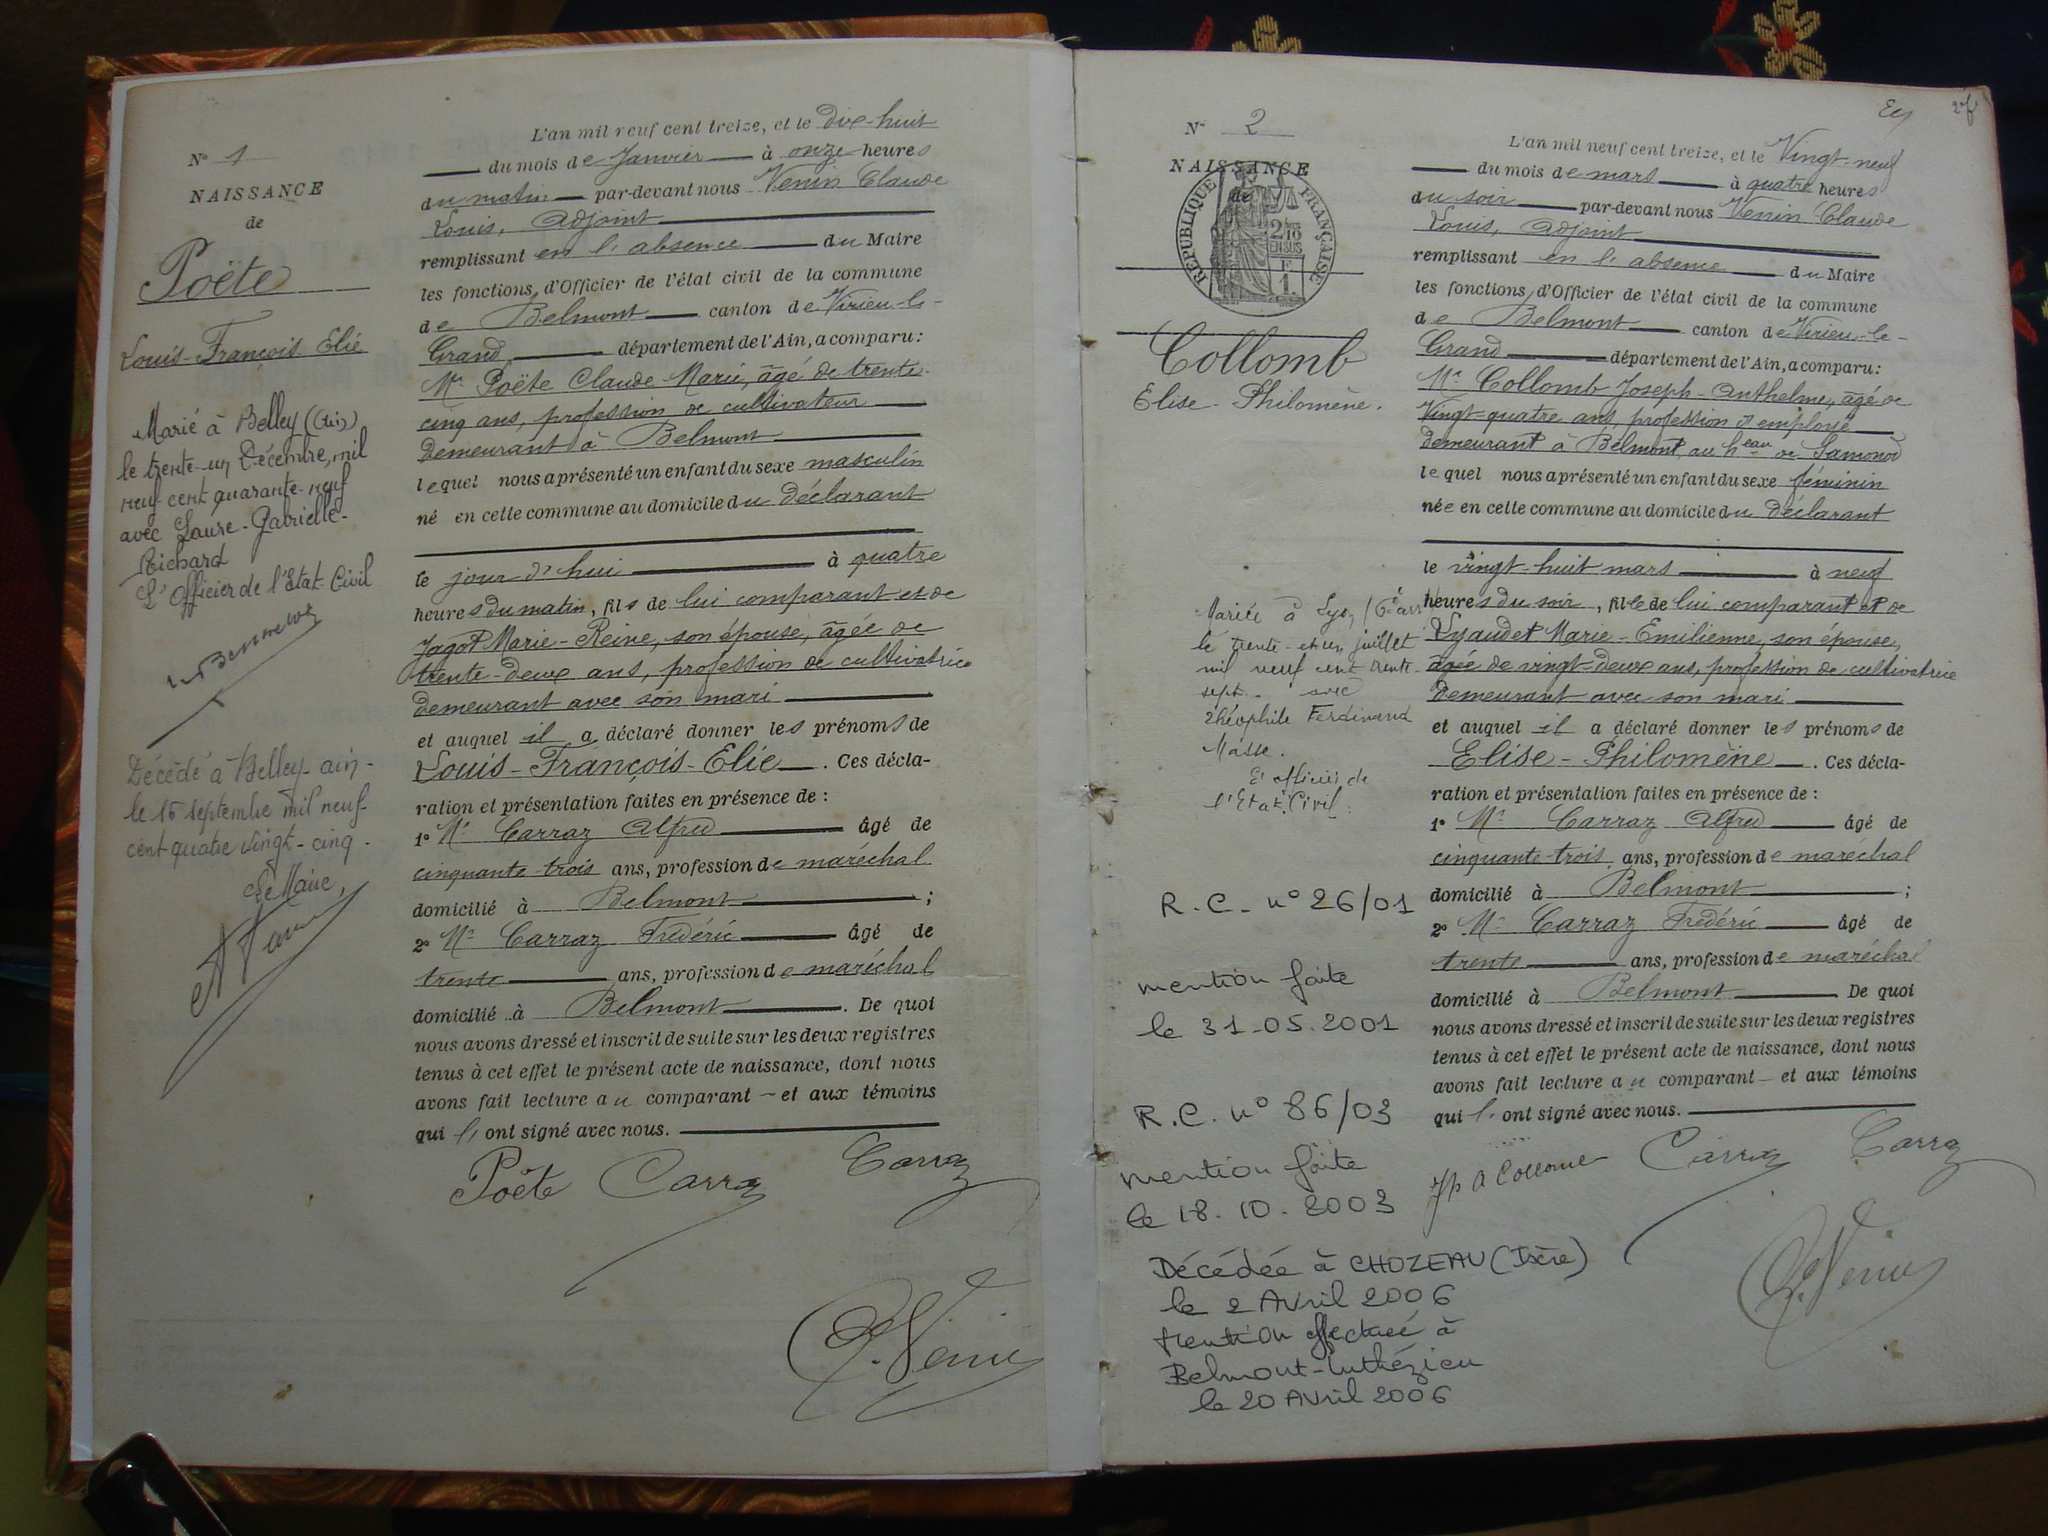 N° 1
NAISSANCE
de
Poëte
Louis-François Elie
Marié à Belley (Ain)
le trente-un Décembre, mil
neuf cent quarante-neuf
avec Laure-Gabrielle-
Richard
L'Officier de l'Etat-Civil
Décédé à Belley-ain-
le 15 septembre mil neuf-
cent quatre vingt-cinq.
Le Maire,
L'an mil neuf cent treize, et le dix-huit
du mois de Janvier à onze heures
du matin par-devant nous Venin Claude
Louis, adjoint
remplissant en l'absence du Maire
les fonctions d'Officier de l'état civil de la commune
de Belmont canton de Virieu-le-
Grand département de l'Ain, a comparu:
Mr Poëte Claude Marie, âgé de trente-
cinq ans, profession de cultivateur
demeurant à Belmont
lequel nous a présenté un enfant du sexe masculin
né en cette commune au domicile du déclarant
le jour d'hui à quatre
heures du matin, fils de lui comparant et de
Jagot Marie-Reine, son épouse, âgée de
trente-deux ans, profession de cultivatrice
demeurant avec son mari
et auquel il a déclaré donner les prénoms de
Louis-François-Elie. Ces décla-
ration et présentation faites en présence de :
1° Mr Carraz Alfred âgé de
cinquante-trois ans, profession de maréchal
domicilié à Belmont ;
2° Mr Carraz Frédéric âgé de
trente ans, profession de maréchal
domicilié à Belmont. De quoi
nous avons dressé et inscrit de suite sur les deux registres
tenus à cet effet le présent acte de naissance, dont nous
avons fait lecture au comparant et aux témoins
qui l' ont signé avec nous.
Poëte Carraz Carraz
Venin
N° 2
NAISSANCE
de
RÉPUBLIQUE FRANÇAISE
2/10
EN SUS
Collomb
Elise-Philomène.
Mariée à Lyon (6e arr)
le trente-et-un juillet
mil neuf cent trente
sept avec
Théophile Ferdinand
Masse.
L'officier de
l'Etat-Civil:
R.C. n° 26/01
mention faite
le 31-05.2001
R.C. n° 86/03
mention faite
le 18.10.2003
Décédée à CHOZEAU (Isère)
le 2 Avril 2006
Mention effectuée à
Belmont-Luthézieu
le 20 Avril 2006
L'an mil neuf cent treize, et le Vingt-neuf
du mois de mars à quatre heures
du soir par-devant nous Venin Claude
Louis, adjoint
remplissant en l'absence du Maire
les fonctions d'Officier de l'état civil de la commune
de Belmont canton de Virieu-le-
Grand département de l'Ain, a comparu:
Mr Collomb Joseph-Anthelme, âgé de
Vingt-quatre ans, profession d'employé
demeurant à Belmont au heau de Samonod
lequel nous a présenté un enfant du sexe féminin
née en cette commune au domicile du déclarant
le vingt-huit mars à neuf
heures du soir, fille de lui comparant et de
Lyaudet Marie-Emilienne, son épouse,
âgée de vingt-deux ans, profession de cultivatrice
demeurant avec son mari
et auquel il a déclaré donner les prénoms de
Elise-Philomène. Ces décla-
ration et présentation faites en présence de :
1° Mr Carraz Alfred âgé de
cinquante-trois ans, profession de maréchal
domicilié à Belmont ;
2° Mr Carraz Frédéric âgé de
trente ans, profession de maréchal
domicilié à Belmont De quoi
nous avons dressé et inscrit de suite sur les deux registres
tenus à cet effet le présent acte de naissance, dont nous
avons fait lecture au comparant et aux témoins
qui l' ont signé avec nous.
Jh A Collomb Carraz Carraz
Venin